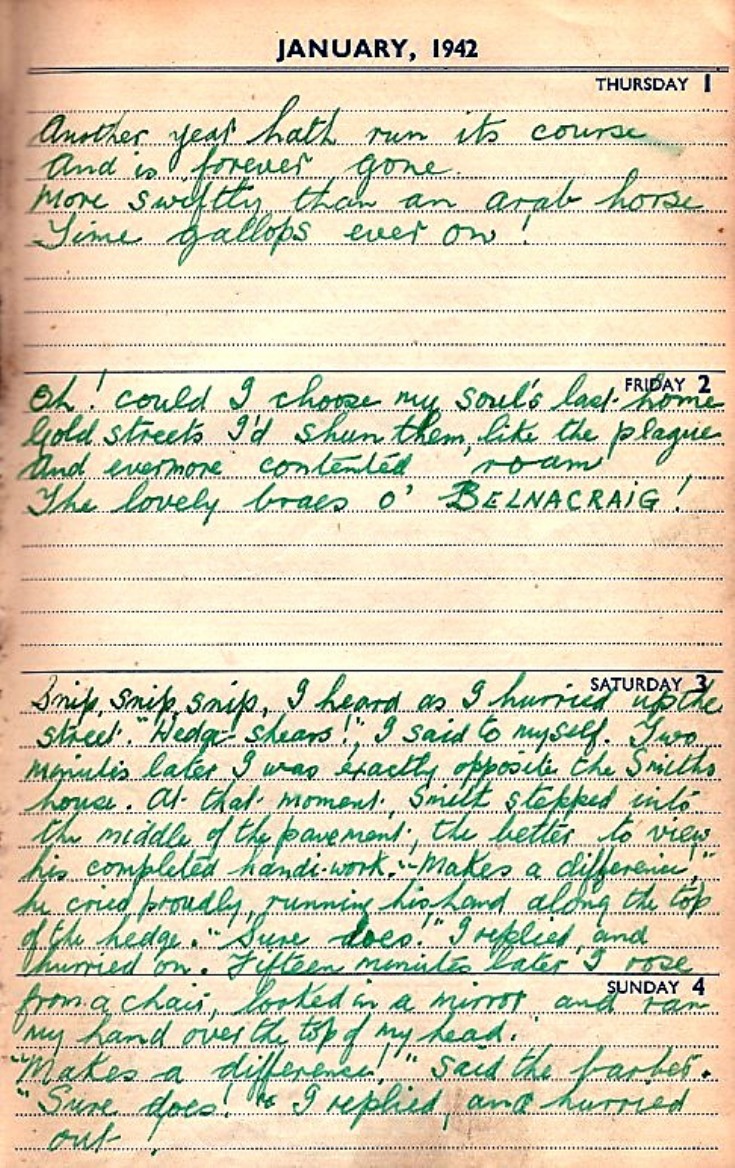 JANUARY, 1942
THURSDAY 1
Another year hath run its course
And is forever gone.
More swiftly than an arab horse
Time gallops ever on!
FRIDAY 2
Oh! could I choose my soul's last home
Gold streets I'd shun them, like the plague
And evermore contented roam
The lovely braes o' BELNACRAIG!
SATURDAY 3
Snip, snip, snip, I heard as I hurried up the
street. "Hedge-shears!", I said to myself. Two
minutes later I was exactly opposite the Smiths
house. At that moment, Smith stepped into
the middle of the pavement, the better to view
his completed handi-work. "Makes a difference!,"
he cried proudly, running his hand along the top
of the hedge. "Sure does!" I replied, and
hurried on. Fifteen minutes later I rose
SUNDAY 4
from a chair, looked in a mirror and ran
my hand over the top of my head.
"Makes a difference!" said the barber.
"Sure does!" I replied, and hurried
out!